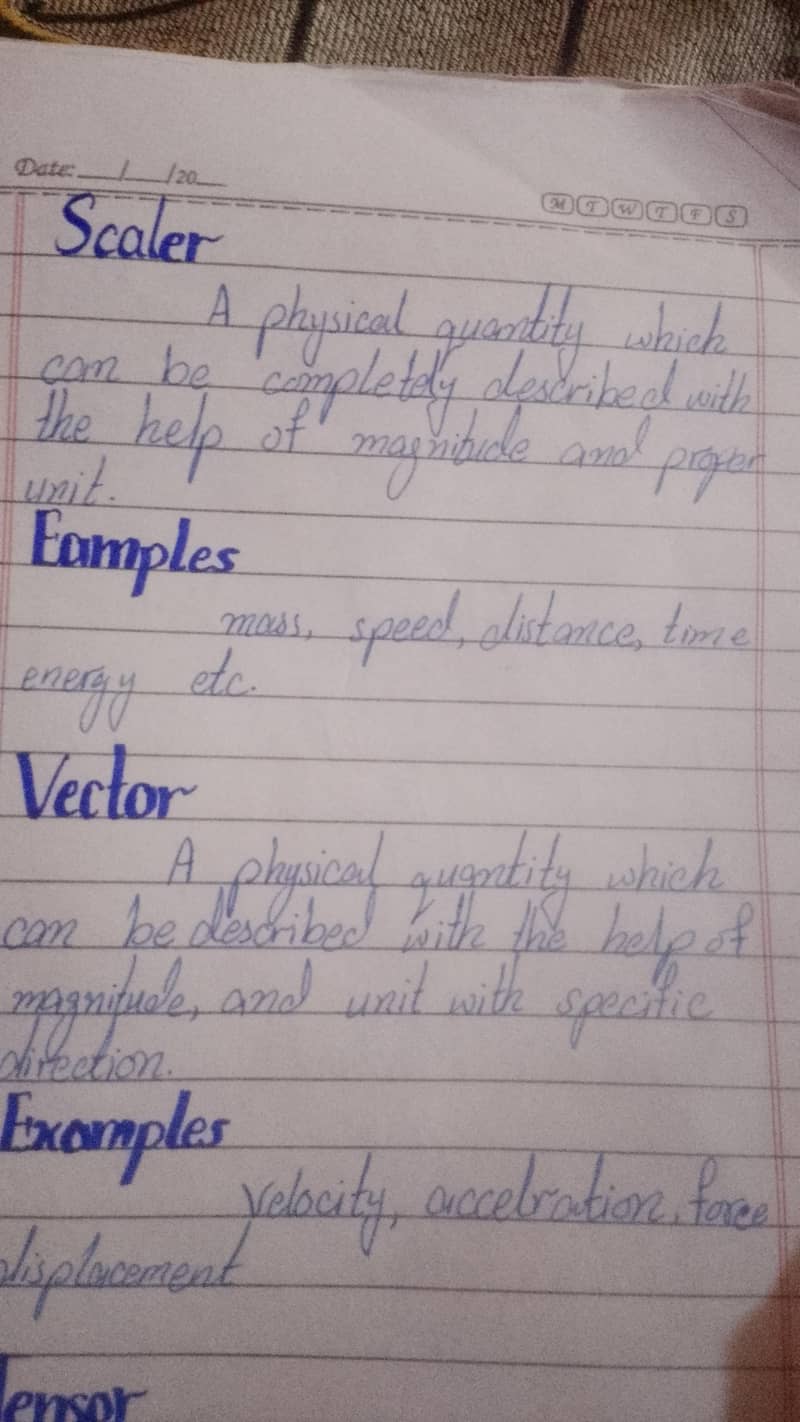 Date: __/__/20__
M T W T F S
Scaler
A physical quantity which
can be completely described with
the help of magnitude and proper
unit.
Eamples
mass, speed, distance, time
energy etc.
Vector
A physical quantity which
can be described with the help of
magnitude, and unit with specific
direction.
Examples
Velocity, accelration, force
displacement
Tensor